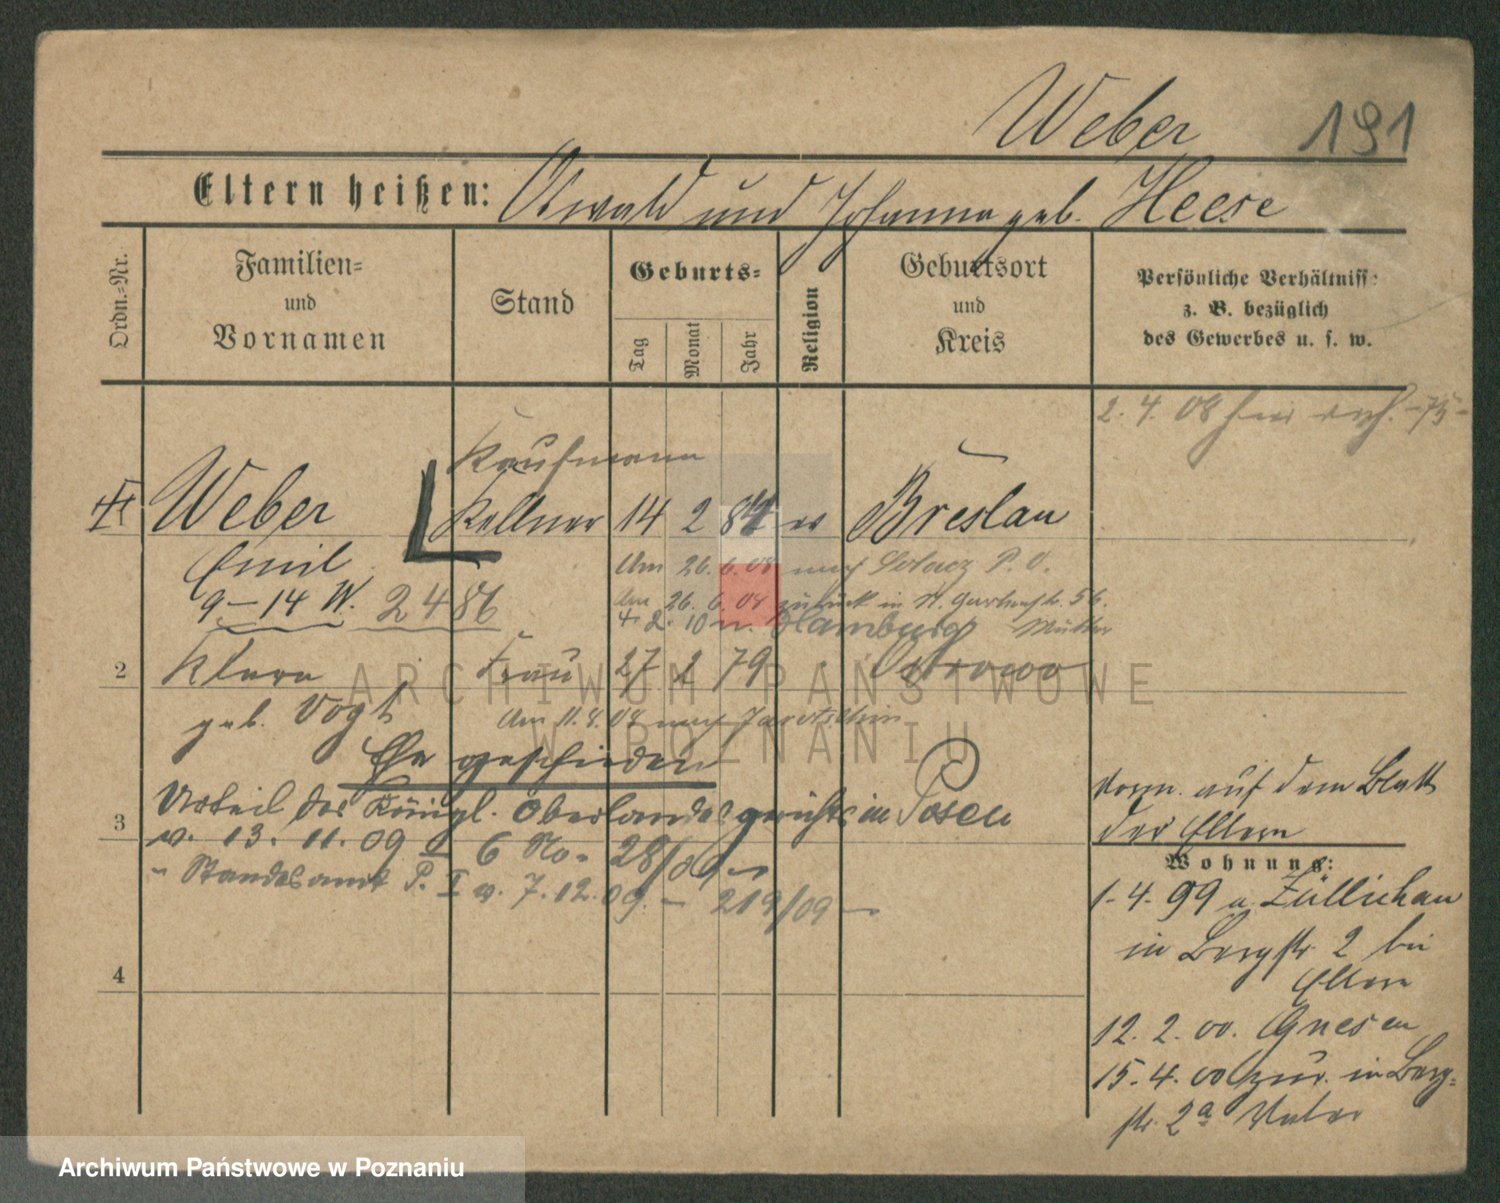 Weber 191
Eltern heißen: Oswald und Johanna geb. Heese
Ordn.-Nr.
Familien-
und
Vornamen
Stand
Geburts-
Tag
Monat
Jahr
Religion
Geburtsort
und
Kreis
Persönliche Verhältnisse
z. B. bezüglich
des Gewerbes u. s. w.
2. 4. 08 -75-
Kaufmann
Weber Kellner 14 2 84 ev Breslau
Emil
Am 26. 6. 08 nach Solacz P. O.
9-14 W. 2486
Am 26. 6. 08 zurück in St. Gartenstr. 56.
2. 10 n. Hamburg Mutter
2 Klara Frau 27 2 79 Ostrowo
geb. Vogt
Am 11. 8. 08 nach Jarotschin
Ehe geschieden
Urteil des Königl. Oberlandesgerichts in Posen
v. 13. 11. 09 6 No. 28/09
3
Standesamt P. I v. 7. 12. 09. - 219/09 -
4
vorm. auf dem Blatt
der Eltern
Wohnung:
1. 4. 99 a. Züllichau
in Bergstr. 2 bei
Eltern
12. 2. 00. Gnesen
15. 4. 00 zur. in Berg-
str. 2a Vater
ARCHIWUM PAŃSTWOWE
W POZNANIU
Archiwum Państwowe w Poznaniu